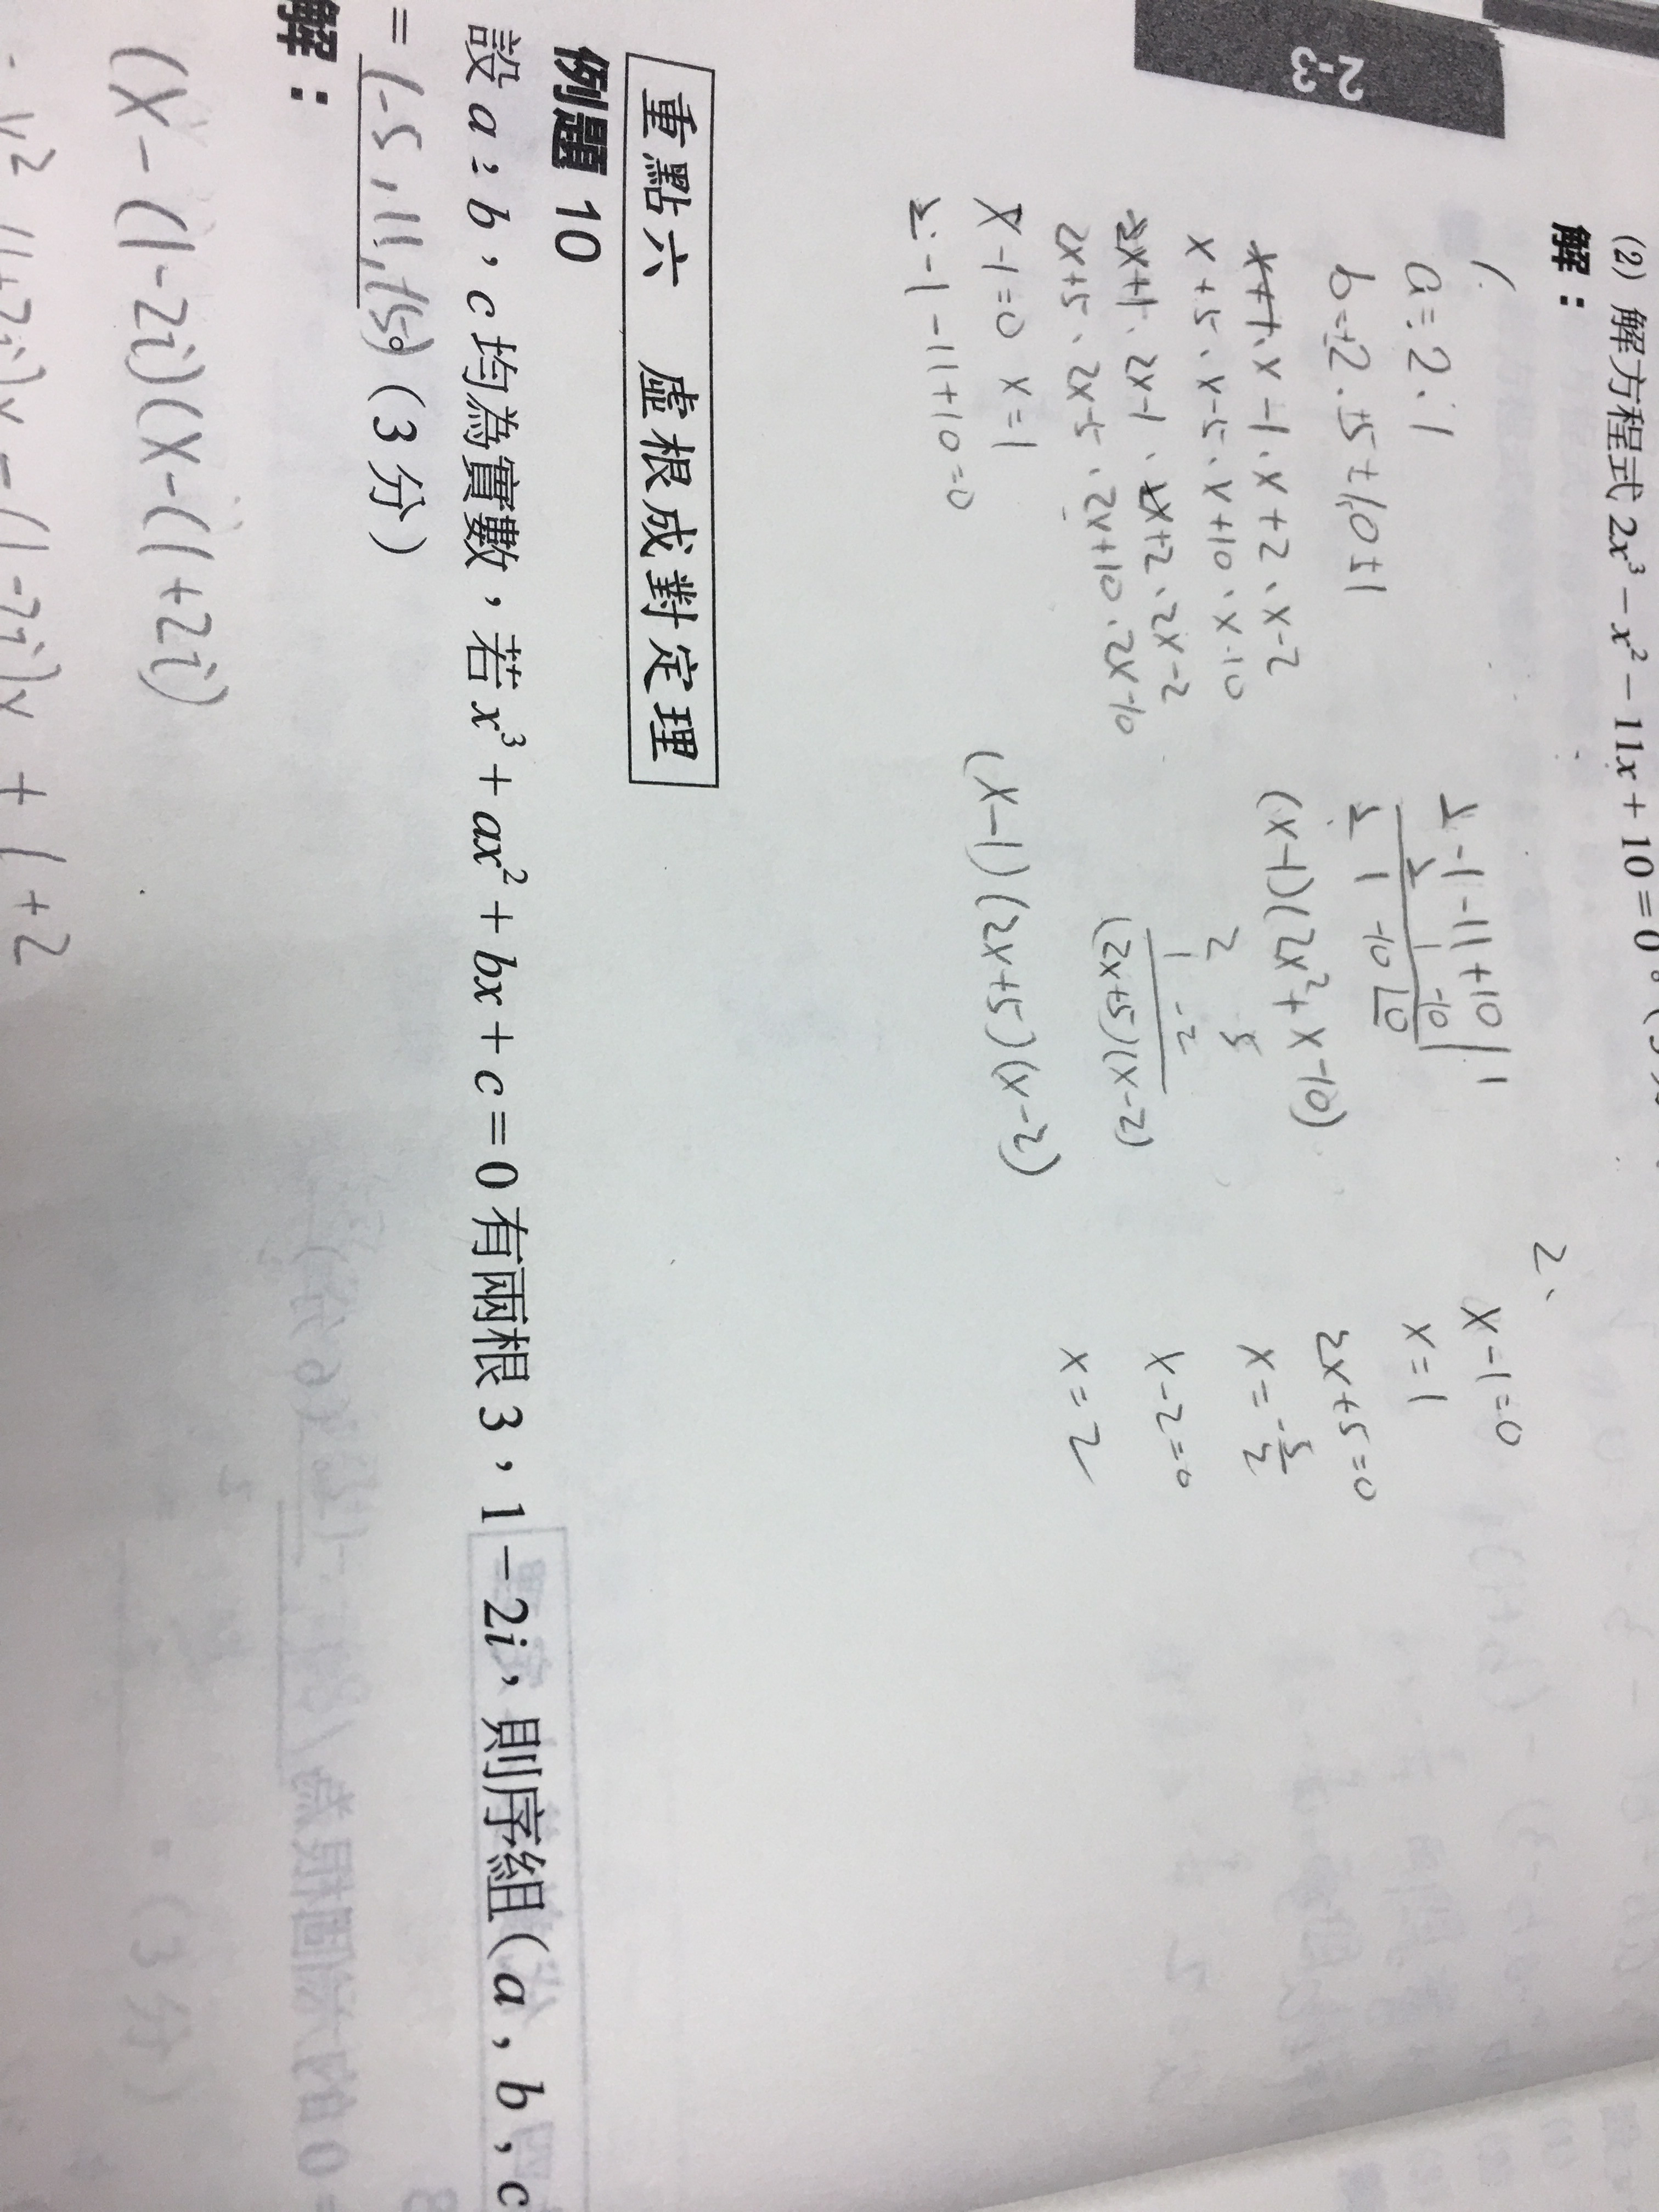 2-3
(2) 解方程式 2x³ − x² − 11x + 10 = 0。
解：
1.
a = 2、1
b = ±2、±5、±10、±1
x+2、x-2
x+5、x-5、x+10、x-10
2x+1、2x-1、
2x+5、2x-5、2x+10、2x-10
x-1=0 x=1
2-1-11+10=0
2-1-11+10|1
2 1 -10
2 1 -10 |0
(x-1)(2x²+x-10)
2 5
1 -2
(2x+5)(x-2)
(x-1)(2x+5)(x-2)
2、
x-1=0
x=1
2x+5=0
x=-5/2
x-2=0
x=2
重點六 虛根成對定理
例題 10
設 a，b，c 均為實數，若 x³ + ax² + bx + c = 0 有兩根 3，1 − 2i，則序組(a，b，c
= (-5,11,-15)。(3 分)
解：
(x-(1-2i)(x-(1+2i)